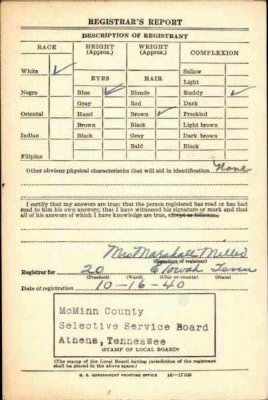 REGISTRAR'S REPORT
DESCRIPTION OF REGISTRANT
RACE HEIGHT (Approx.) WEIGHT (Approx.) COMPLEXION
White ✓ Sallow
EYES HAIR Light
Negro Blue ✓ Blonde Ruddy ✓
Gray Red Dark
Oriental Hazel Brown ✓ Freckled
Brown Black Light brown
Indian Black Gray Dark brown
Bald Black
Filipino
Other obvious physical characteristics that will aid in identification None
I certify that my answers are true; that the person registered has read or has
had read to him his own answers; that I have witnessed his signature or mark and that
all of his answers of which I have knowledge are true, except as follows:
Mrs Marshall Miller
(Signature of registrar)
Registrar for 20 Etowah Tenn
(Precinct) (Ward) (City or county) (State)
Date of registration 10-16-40
McMinn County
Selective Service Board
Athens, Tennessee
(STAMP OF LOCAL BOARD)
(The stamp of the Local Board having jurisdiction of the registrant
shall be placed in the above space.)
U. S. GOVERNMENT PRINTING OFFICE 16—17105